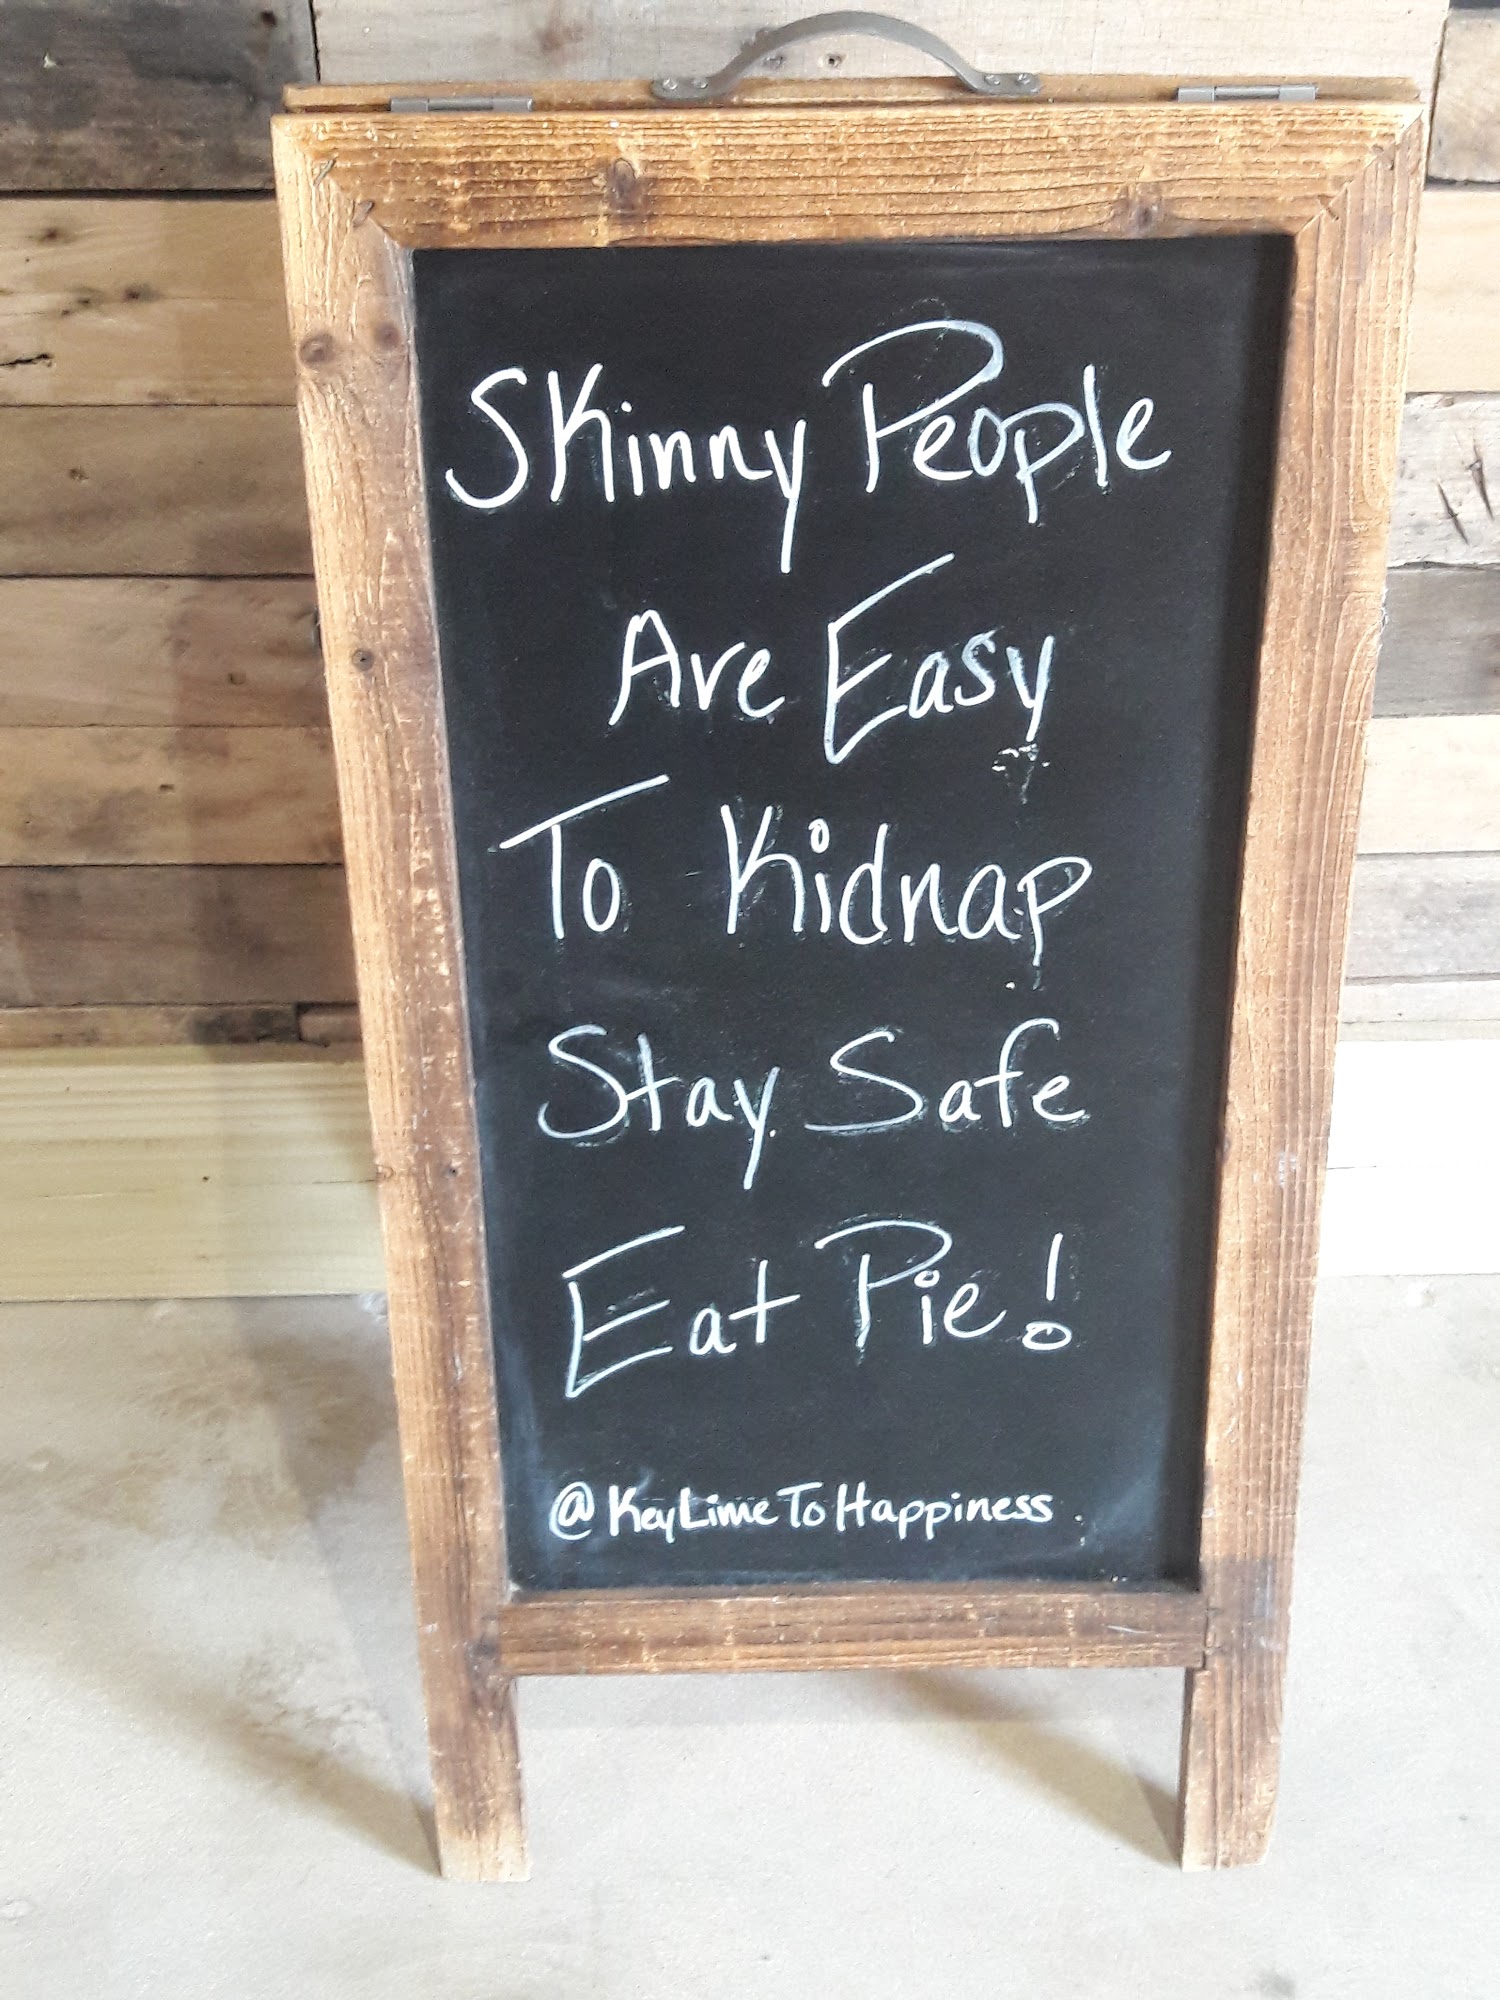 Skinny People
Are Easy
To Kidnap
Stay Safe
Eat Pie!
@KeyLimeToHappiness.